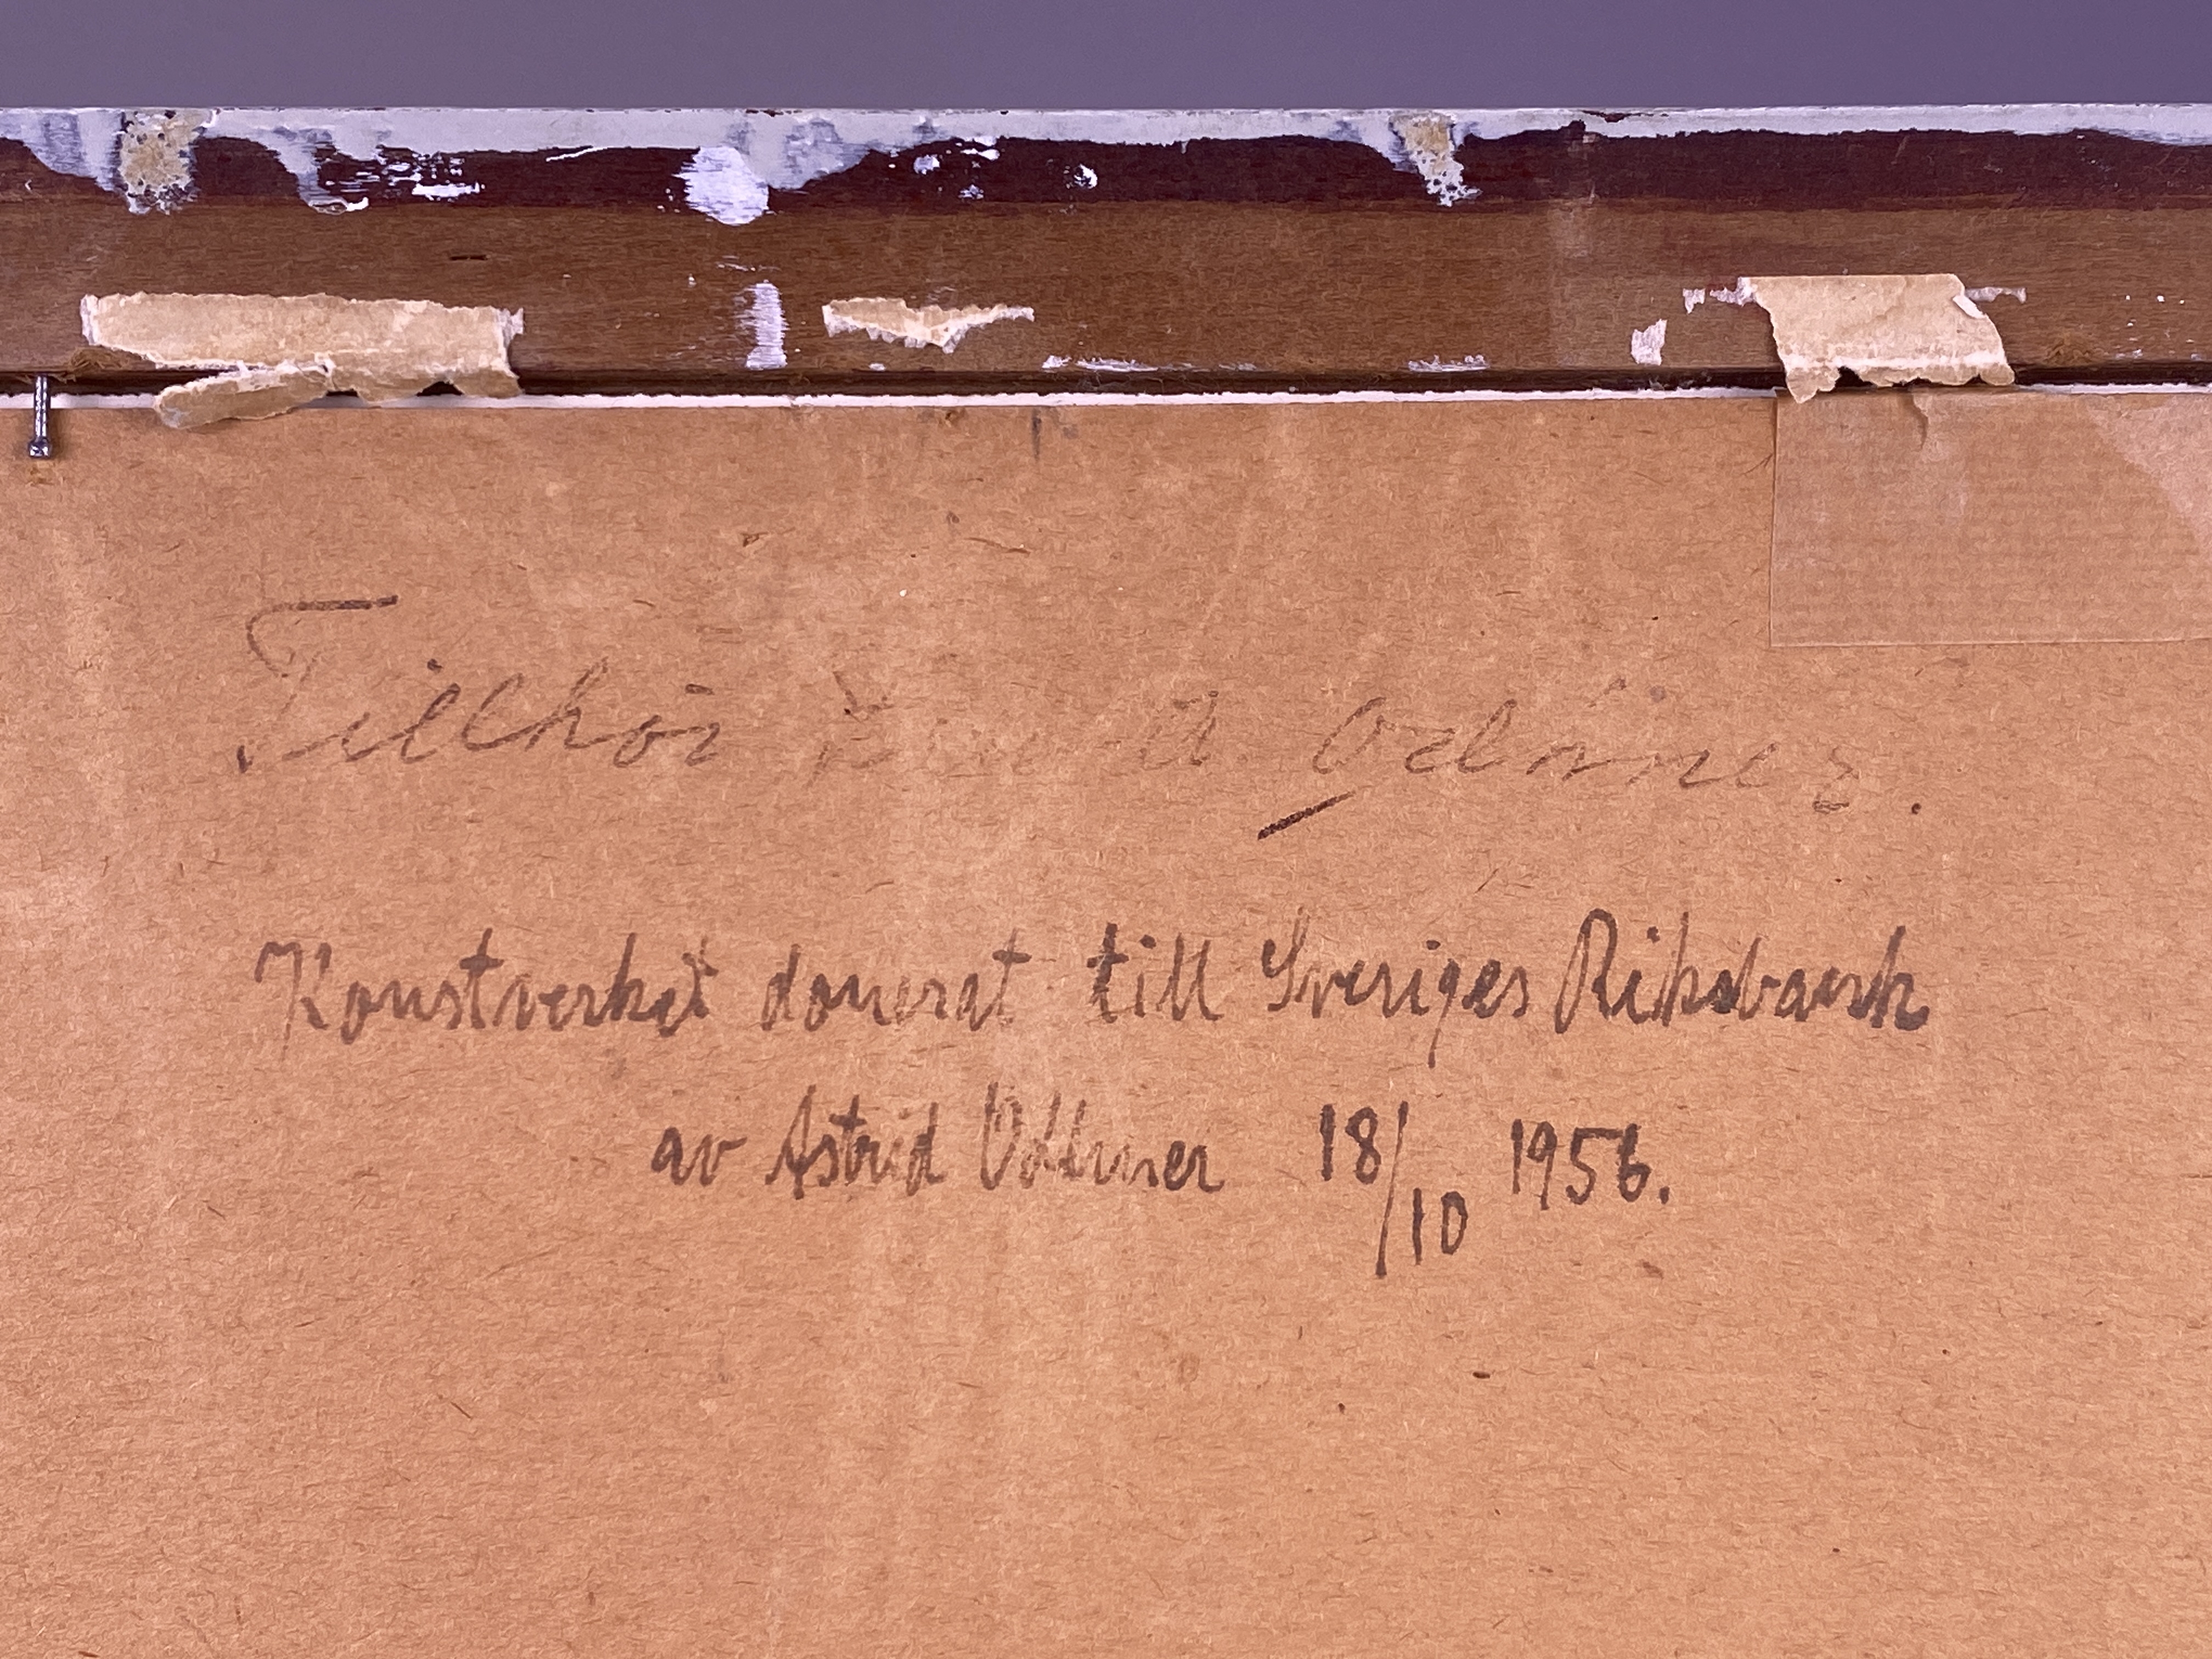 Tillhör A. Odhner.
Konstverket donerat till Sveriges Riksbank
av Astrid Odhner 18/10 1956.